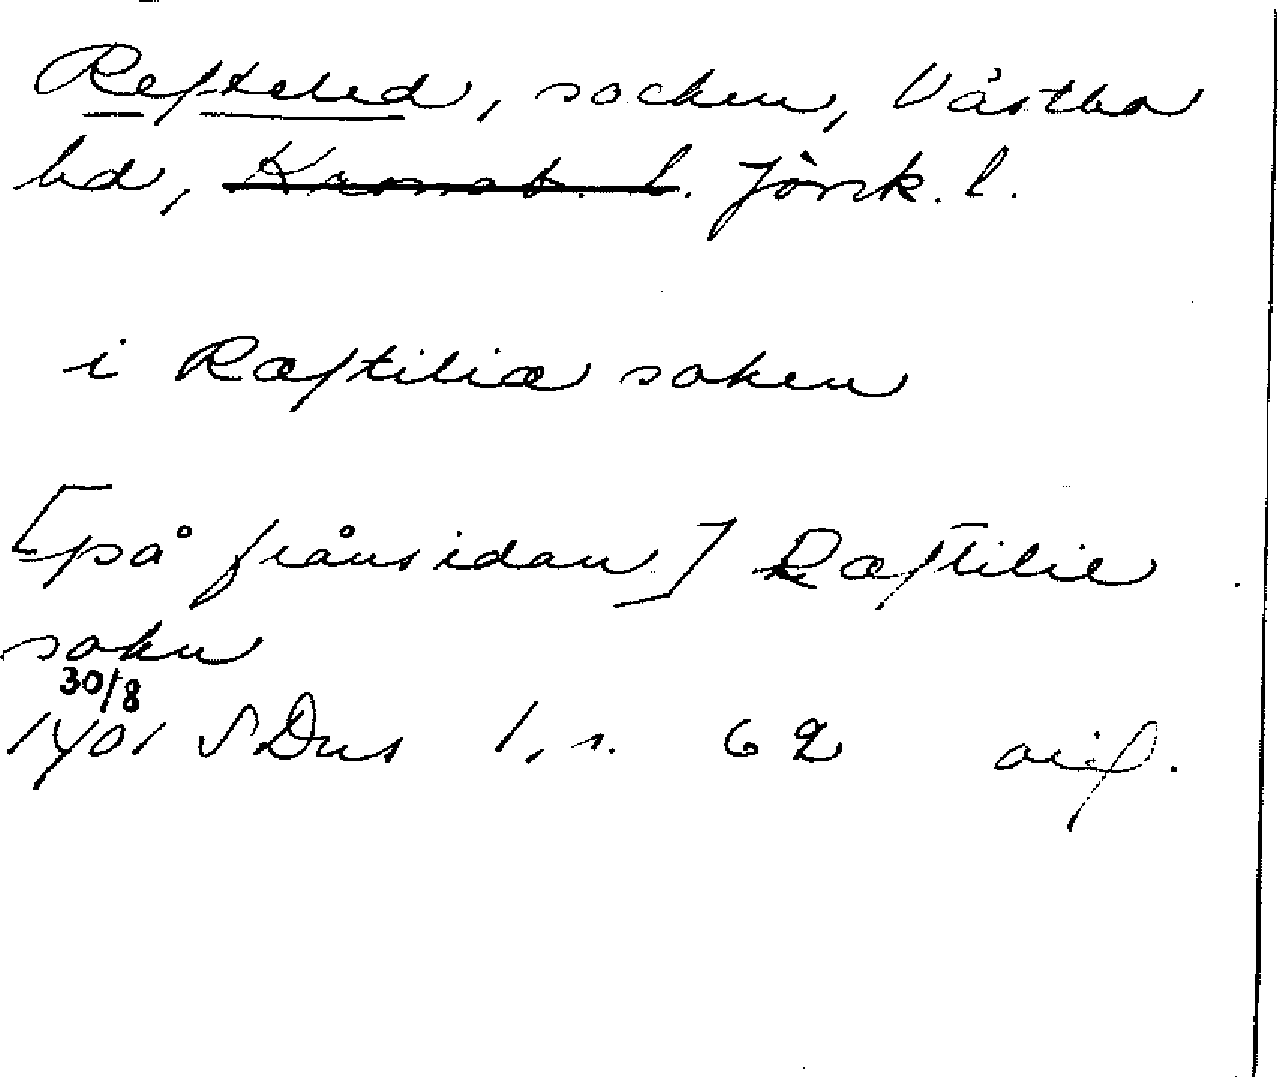 Refteled, socken, Västbo
hd, Kronob. l. Jönk. l.
i Ræftiliæ soken
[på frånsidan] Ræftilie
sokn
30/8
1401 SDns 1, s. 62 orig.